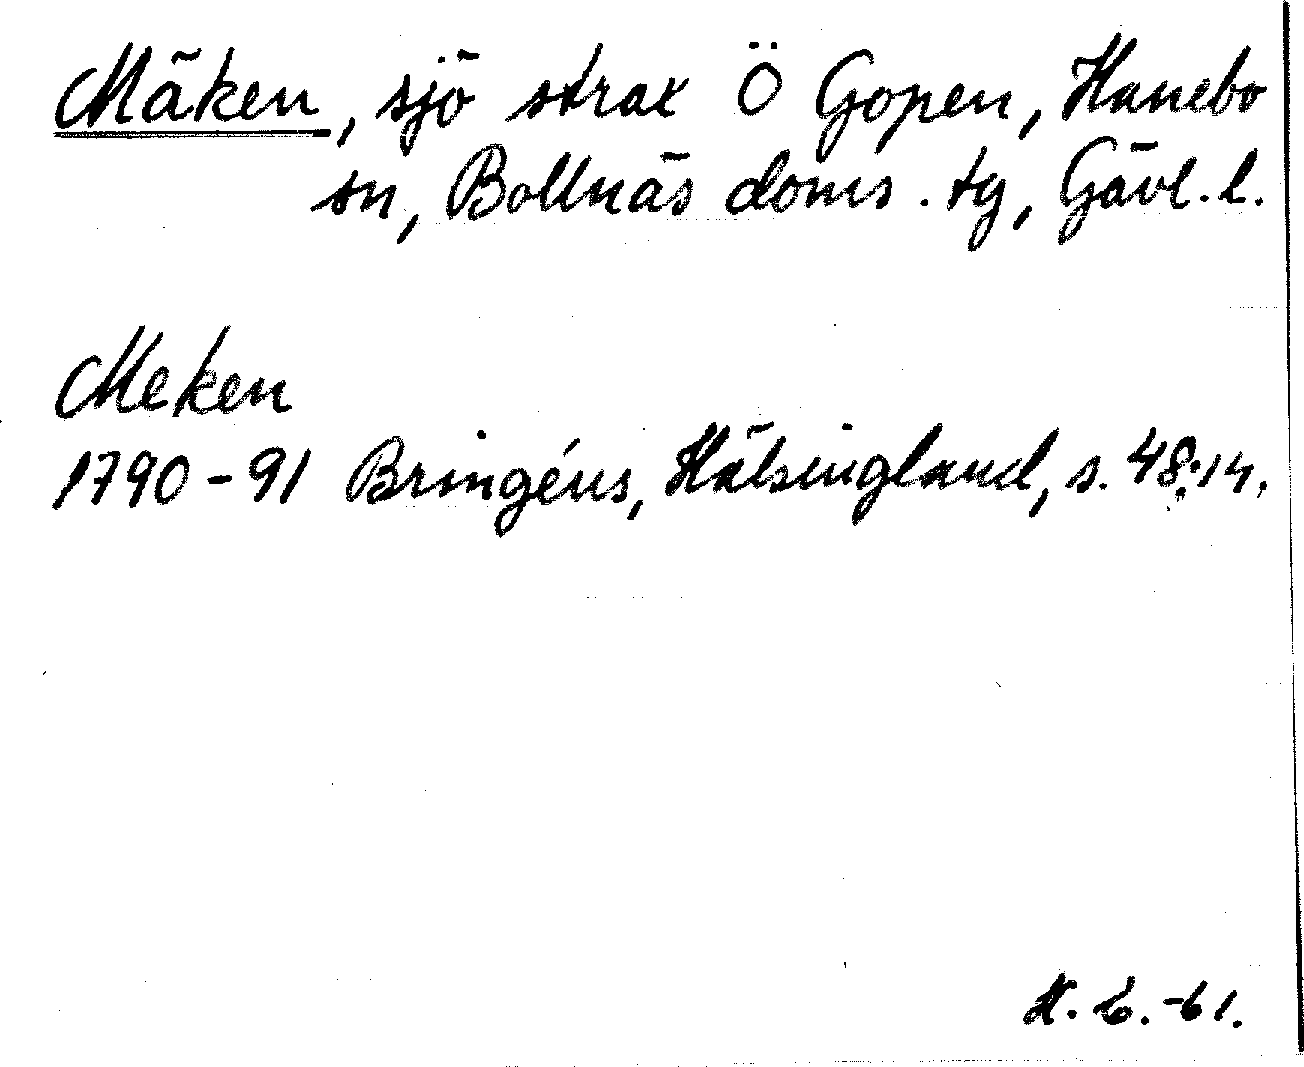 Mäken, sjö strax Ö Gopen, Hanebo
sn, Bollnäs doms. tg, Gävl. l.
Meken
1790-91 Bringéus, Hälsingland, s. 48:14.
-61.